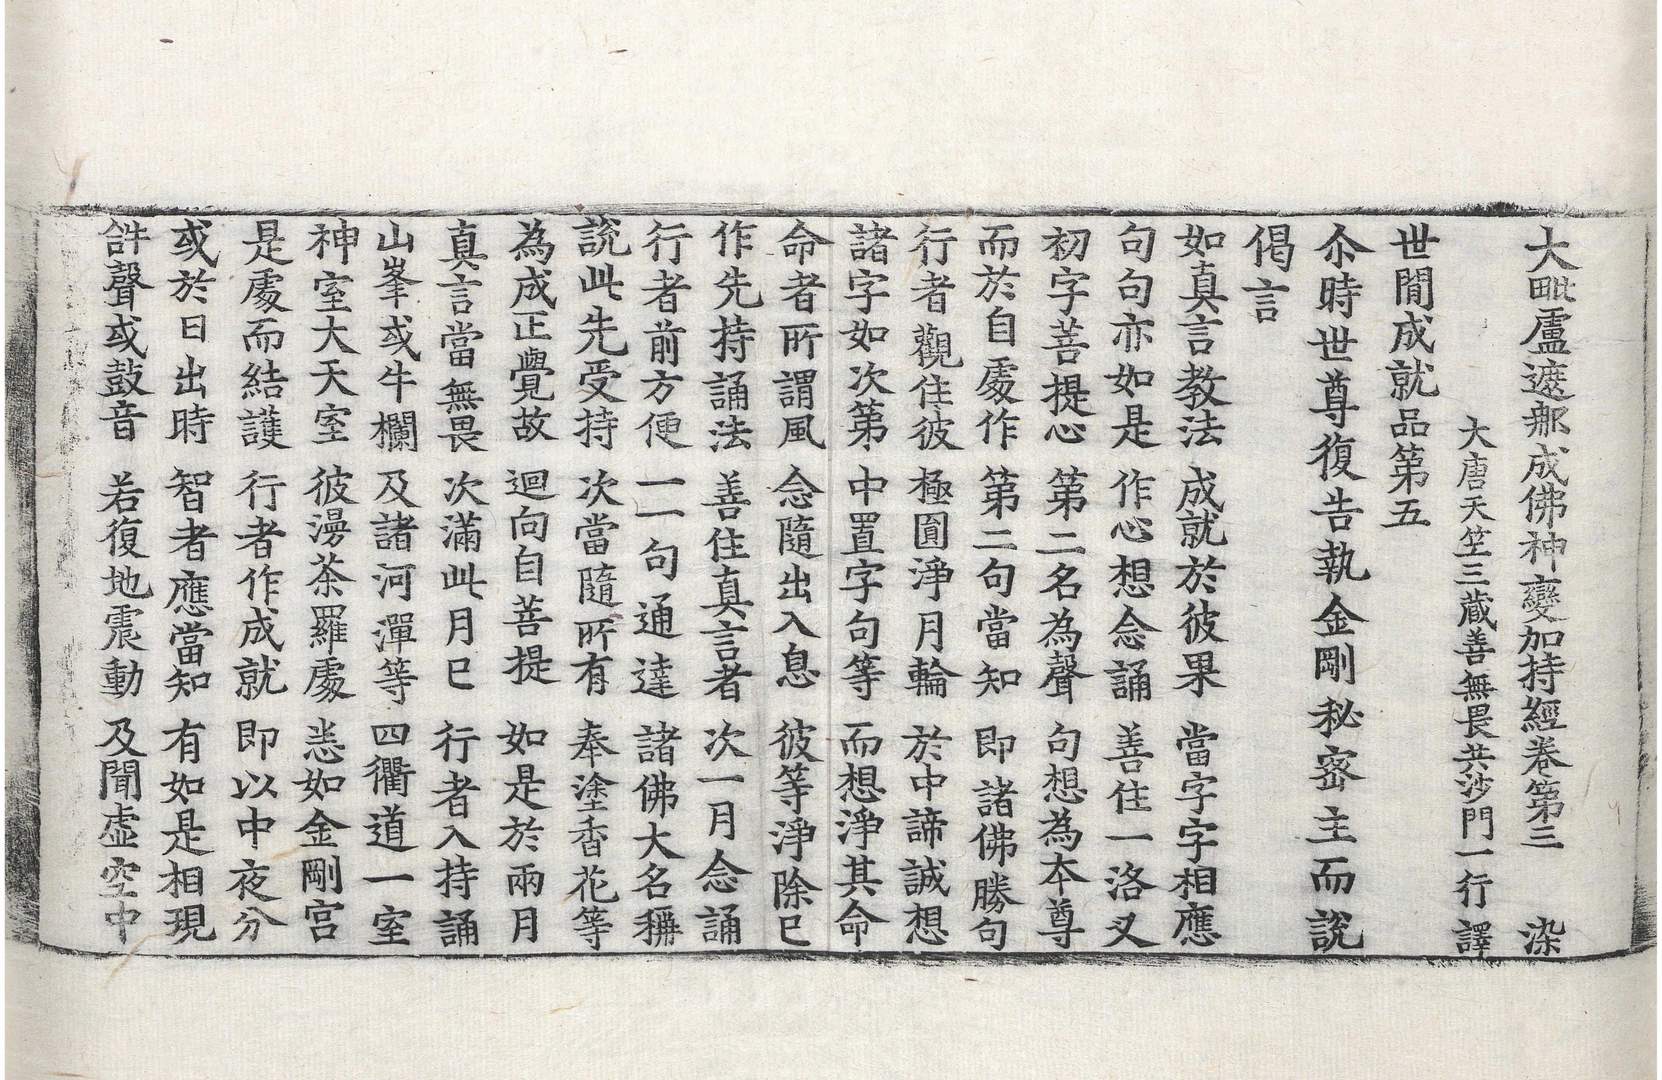 大毗盧遮那成佛神變加持經卷第三 染
大唐天竺三藏善無畏共沙門一行譯
世閒成就品第五
尒時世尊復告執金剛秘密主而說
偈言
如真言教法 成就於彼果 當字字相應
句句亦如是 作心想念誦 善住一洛叉
初字菩提心 第二名為聲 句想為本尊
而於自處作 第二句當知 即諸佛勝句
行者觀住彼 極圓淨月輪 於中諦誠想
諸字如次第 中置字句等 而想淨其命
命者所謂風 念隨出入息 彼等淨除已
作先持誦法 善住真言者 次一月念誦
行者前方便 一一句通達 諸佛大名稱
說此先受持 次當隨所有 奉塗香花等
為成正覺故 迴向自菩提 如是於兩月
真言當無畏 次滿此月已 行者入持誦
山峯或牛欄 及諸河潬等 四衢道一室
神室大天室 彼漫茶羅處 悉如金剛宮
是處而結護 行者作成就 即以中夜分
或於日出時 智者應當知 有如是相現
𤙖聲或鼓音 若復地震動 及聞虛空中